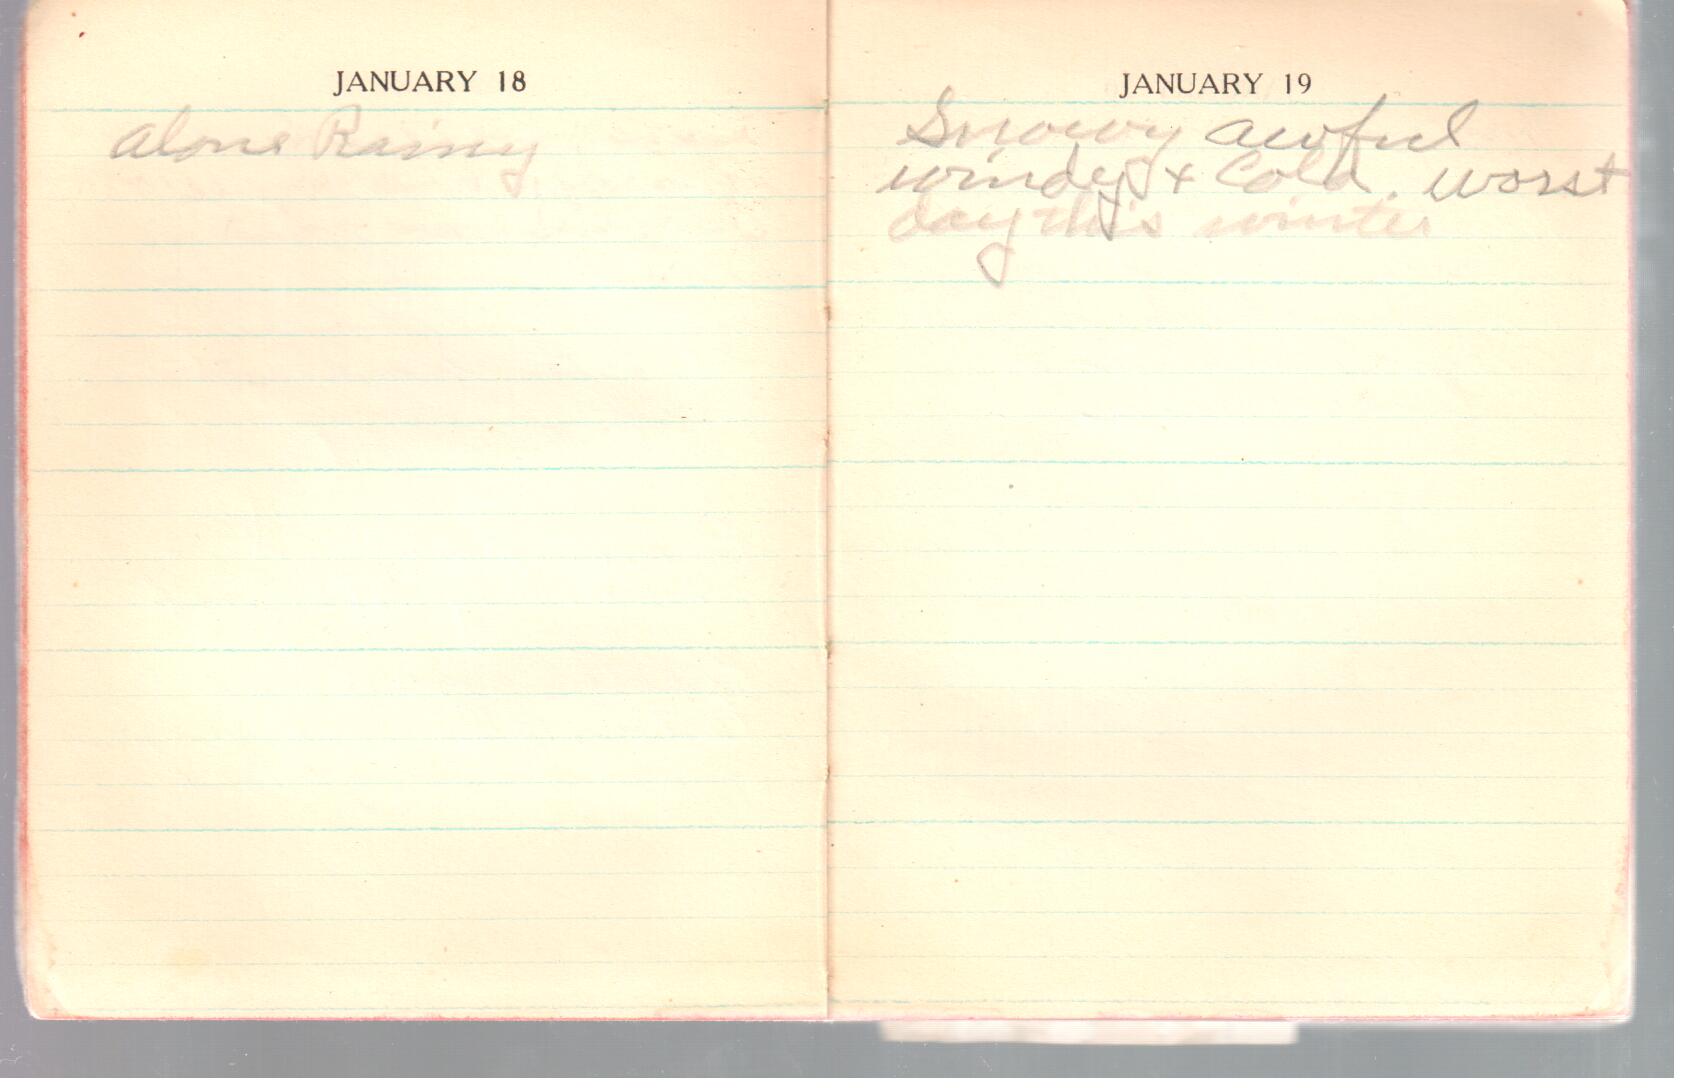 JANUARY 18
alone Rainy
JANUARY 19
Snowy awful
windy + Cold. worst
day this winter